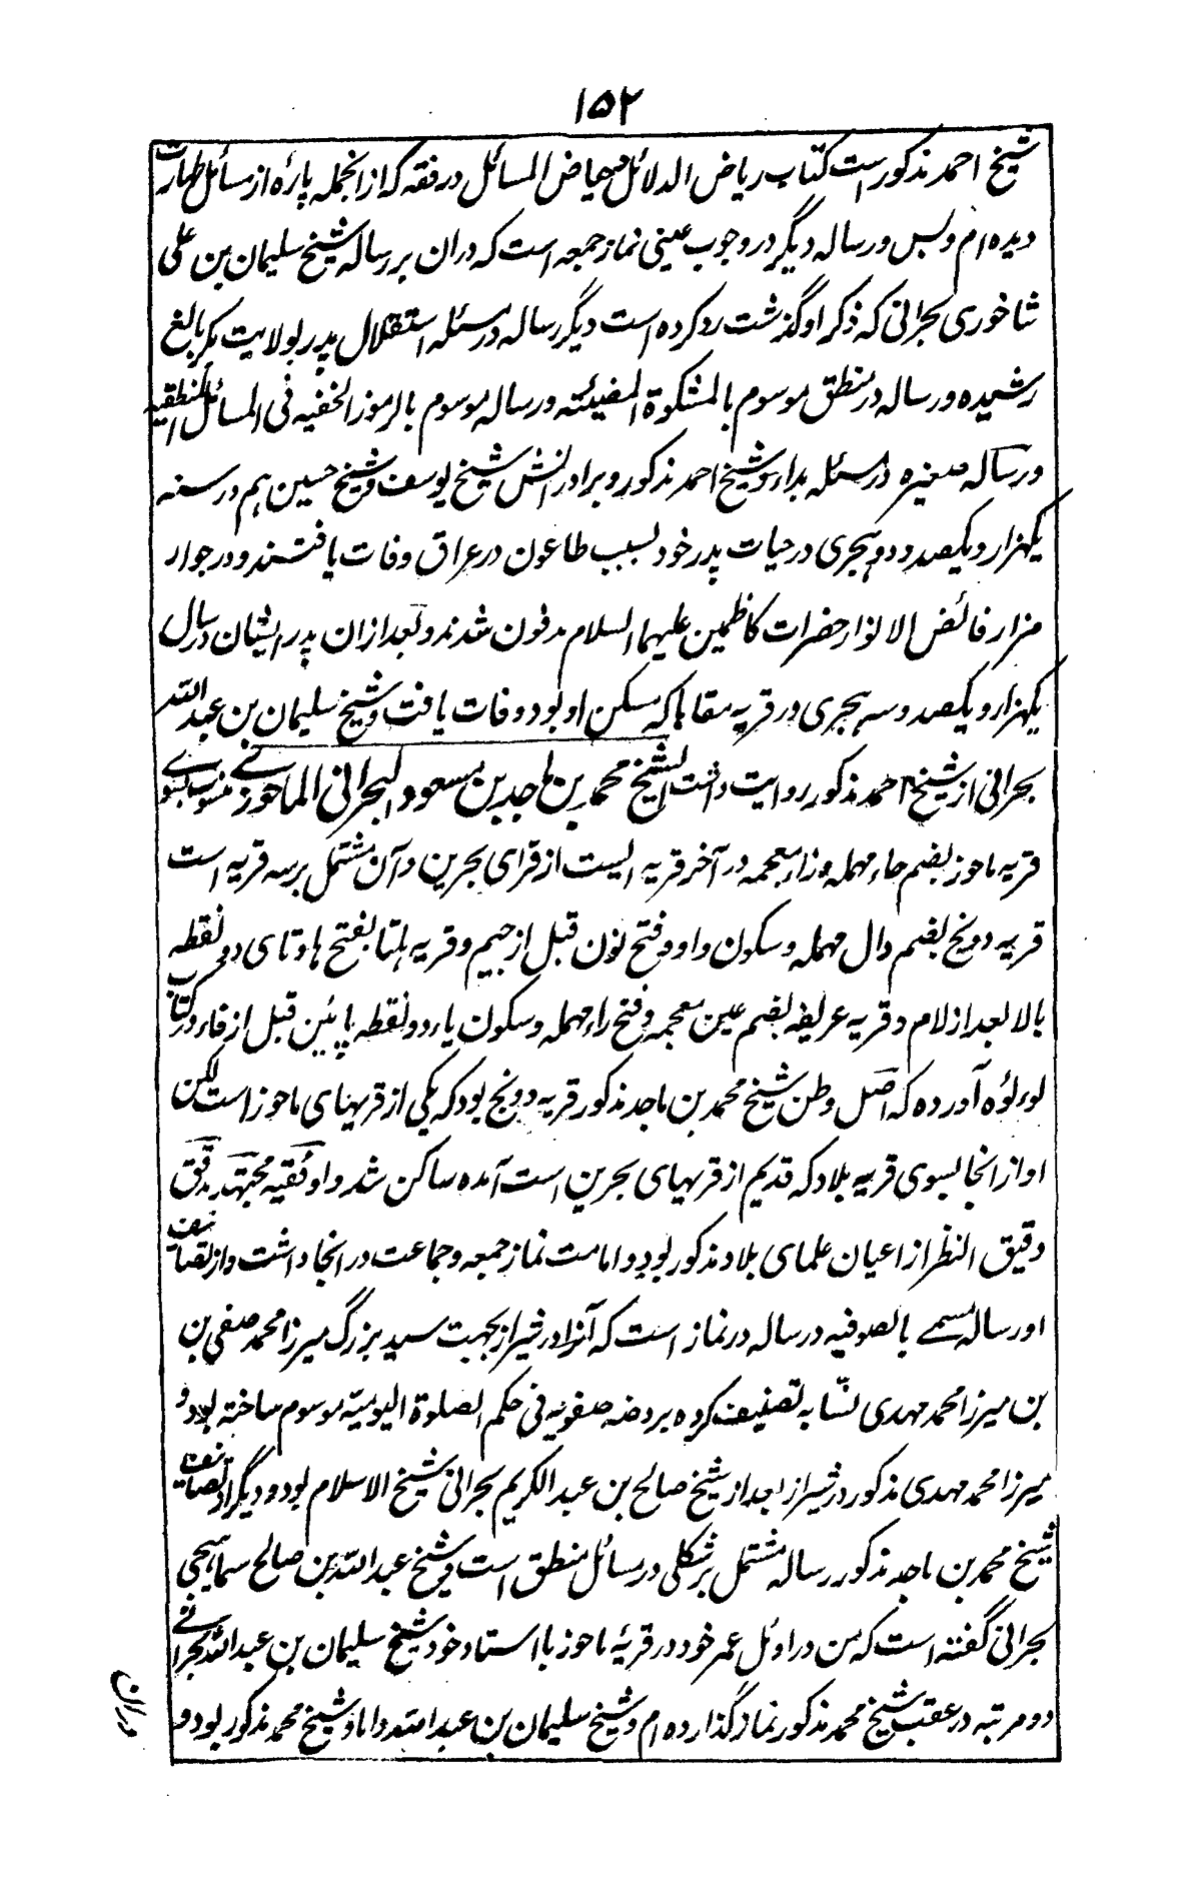 ۱۵۲
شیخ احمد مذکور است کتاب ریاض الدلائل و حیاض المسائل در فقه که ازانجمله پارهٔ از مسائل طهارت
دیده ام و بس و رساله دیگر در وجوب عینی نماز جمعه است که دران بر رساله شیخ سلیمان بن علی
شاخوری بحرانی که ذکر او گذشت رد کرده است دیگر رساله در مسئله استقلال پدر بولایت بکر بالغ
رشیده و رساله در منطق موسوم بالمشکوة المضیئته و رساله موسوم بالرموز الخفیه فی المسائل المنطقیه
و رساله صغیره در مسئله بداء و شیخ احمد مذکور و برادرانش شیخ یوسف و شیخ حسین هم در سنه
یکهزار و یکصد و دو هجری در حیات پدر خود بسبب طاعون در عراق وفات یافتند و در جوار
مزار فائض الانوار حضرات کاظمین علیهما السلام مدفون شدند و بعد ازان پدر ایشان در سال
یکهزار و یکصد و سه هجری در قریه مقابا که مسکن او بود وفات یافت و شیخ سلیمان بن عبدالله
بحرانی از شیخ احمد مذکور روایت داشت الشیخ محمد بن ماجد بن مسعود البحرانی الماحوزی منسوب بسوی
قریه ماحوز بضم حاء مهمله و زاء معجمه در آخر قریه ایست از قرای بحرین و آن مشتمل بر سه قریه است
قریه دونج بضم دال مهمله و سکون واو و فتح نون قبل از جیم و قریه هلتا بفتح ها و تای دو نقطه
بالا بعد از لام و قریه غریفه بضم عین معجمه و فتح راء مهمله و سکون یاء دو نقطه پائین قبل از فاء و در کتاب
لوءلوٴه آورده که اصل وطن شیخ محمد بن ماجد مذکور قریه دونج بود که یکی از قریهای ماحوز است لکن
او از انجا بسوی قریه بلاد که قدیم از قریهای بحرین است آمده ساکن شد و او فقیه مجتهد مدقق
دقیق النظر از اعیان علمای بلاد مذکور بود و امامت نماز جمعه و جماعت در انجا داشت و از تصانیف
او رساله مسمے بالصوفیه و رساله در نماز است که آنرا در شیراز بجهت سید بزرگ میرزا محمد صفی بن
بن میرزا محمد مهدی نسّابه تصنیف کرده بروضه صفویه فی حکم الصلوة الیومیّه موسوم ساخته بود و
میرزا محمد مهدی مذکور در شیراز بعد از شیخ صالح بن عبد الکریم بحرانی شیخ الاسلام بود و دیگر از تصانیف
شیخ محمد بن ماجد مذکور رساله مشتمل بر شکلی در رسائل منطق است و شیخ عبد الله بن صالح سماهیجی
بحرانی گفته است که من در اوئل عمر خود در قریهٔ ماحوز با استاد خود شیخ سلیمان بن عبدالله بحرانے
دو مرتبه در عقب شیخ محمد مذکور نماز گذارده ام و شیخ سلیمان بن عبدالله داماد شیخ محمد مذکور بود و
دران